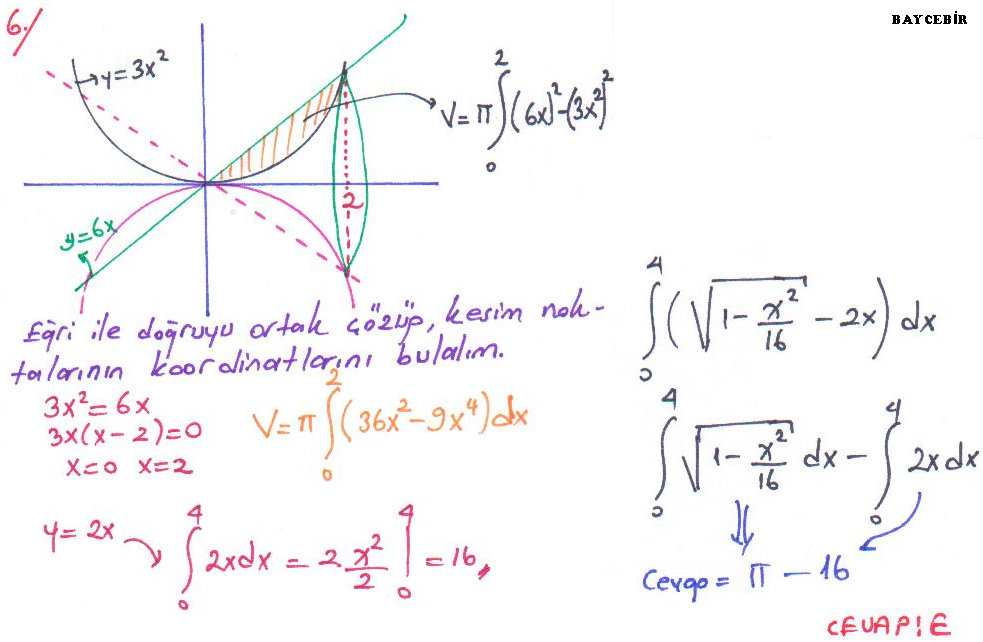 6./
BAYCEBİR
y=3x²
V = π ∫₀² (6x)² - (3x²)²
2
y=6x
Eğri ile doğruyu ortak çözüp, kesim nok-
talarının koordinatlarını bulalım.
3x² = 6x
3x(x - 2) = 0
x=0 x=2
V = π ∫₀² (36x² - 9x⁴) dx
y = 2x
∫₀⁴ 2x dx = 2 x²/2 |₀⁴ = 16,,
∫₀⁴ (√(1 - x²/16) - 2x) dx
∫₀⁴ √(1 - x²/16) dx - ∫₀⁴ 2x dx
Cevap = π - 16
CEVAP: E